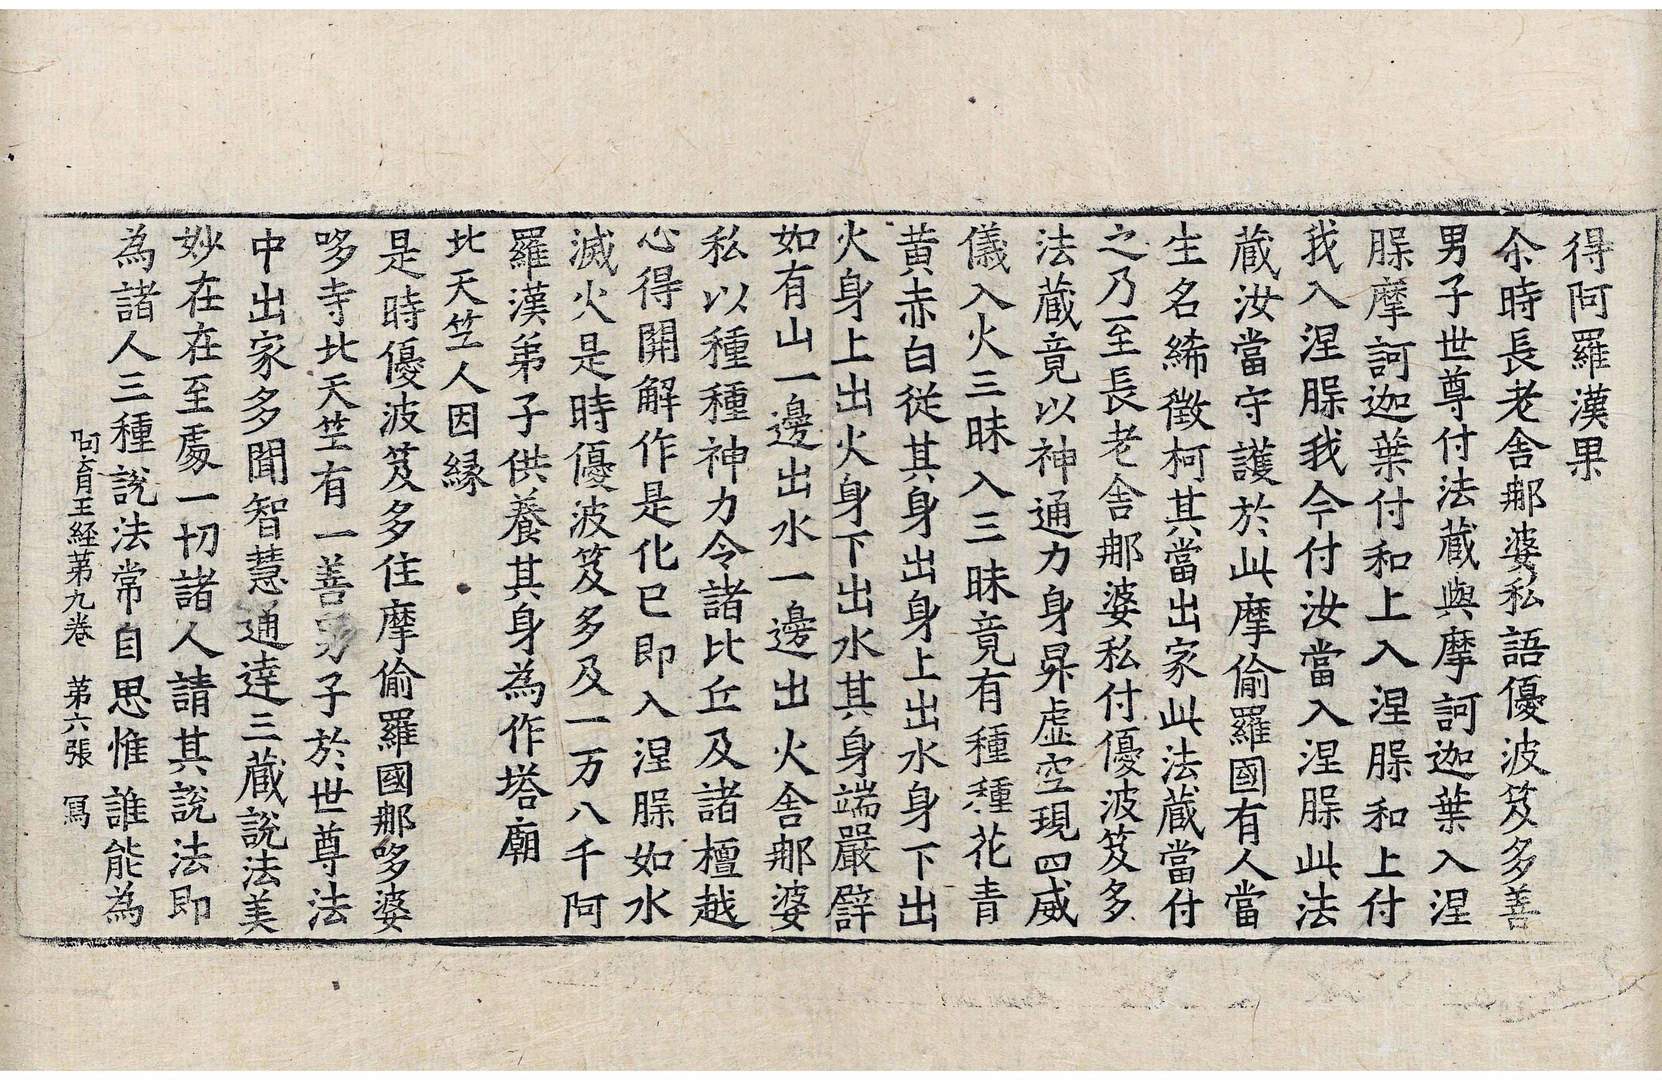 得阿羅漢果
尒時長老舍那婆私語優波笈多善
男子世尊付法蔵與摩訶迦葉入涅
䏶摩訶迦葉付和上入涅䏶和上付
我入涅䏶我今付汝當入涅䏶此法
蔵汝當守護於此摩偷羅國有人當
生名絺徵柯其當出家此法蔵當付
之乃至長老舍那婆私付優波笈多
法蔵竟以神通力身昇虚空現四威
儀入火三昧入三昧竟有種種花青
黄赤白從其身出身上出水身下出
火身上出火身下出水其身端嚴譬
如有山一邊出水一邊出火舍那婆
私以種種神力令諸比丘及諸檀越
心得開解作是化已即入涅䏶如水
滅火是時優波笈多及一万八千阿
羅漢弟子供養其身為作塔廟
北天竺人因縁
是時優波笈多住摩偷羅國那哆婆
哆寺北天竺有一善男子於世尊法
中出家多聞智慧通達三蔵說法美
妙在在至處一切諸人請其說法即
為諸人三種說法常自思惟誰能為
阿育王経第九巻 第六張 冩